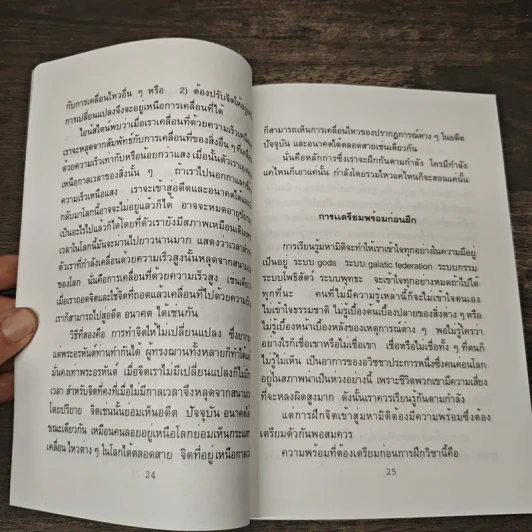 กับการเคลื่อนไหวอื่น ๆ หรือ 2) ต้องปรับจิตให้
การเปลี่ยนแปลงจึงจะอยู่เหนือการเคลื่อนที่ได้
ไอน์สไตน์พบว่าเมื่อเราเคลื่อนที่ด้วยความเร็วเหนือ
เราจะหลุดจากสัมพัทธ์กับการเคลื่อนที่ของสิ่งอื่น ๆ
ด้วยความเร็วเท่ากับหรือน้อยกว่าแสง เมื่อนั้นตัวเราเอง
เหนือกาลเวลาของสิ่งนั้น ๆ ถ้าเราไปนอกกาแล็กซี่
ความเร็วเหนือแสง เราจะเข้าสู่อดีตและอนาคตได้
กลับมาโลกนี้อาจจะไม่อยู่แล้วก็ได้ อาจจะหมดอายุขัย
เป็นอะไรไปแล้วก็ได้โดยที่ตัวเรายังมีสภาพเหมือนเดิม
เวลาในโลกนี้มันจะผ่านไปยาวนานมาก แสดงว่าเวลา
ตัวเราที่กำลังเคลื่อนด้วยความเร็วสูงนั้นหลุดจาก
ของโลก นั่นคือการเคลื่อนที่ด้วยความเร็วสูง เช่นเดียว
เมื่อเราถอดจิตและใช้จิตที่ถอดแล้วเคลื่อนที่ไปด้วยความ
เราก็สามารถไปสู่อดีต อนาคต ได้เช่นกัน
วิธีที่สองคือ การทำจิตให้ไม่เปลี่ยนแปลง ซึ่งยาก
แต่พระอรหันต์ท่านทำกันได้ ผู้ทรงฌานทั้งหลายก็ทำได้
มั่นคงเท่าพระอรหันต์ เมื่อจิตเราไม่มีเปลี่ยนแปลงก็ไม่มี
เวลา สำหรับจิตที่คงที่เมื่อไม่มีกาลเวลาจึงหลุดจาก
โดยปริยาย จิตเช่นนั้นยอมเห็นอดีต ปัจจุบัน อนาคต
ขณะเดียวกัน เหมือนคนลอยอยู่เหนือโลกยอมเห็น
เคลื่อนไหวต่าง ๆ ในโลกได้ตลอดสาย จิตที่อยู่เหนือกาล
24
ก็สามารถเห็นการเคลื่อนไหวของปรากฏการณ์ต่าง ๆ ในอดีต
ปัจจุบัน และอนาคตได้ตลอดสายเช่นเดียวกัน
นั่นคือหลักการซึ่งเราจะฝึกกันตามกำลัง ใครมีกำลัง
แค่ไหนก็เอาแค่นั้น กำลังโดยรวมไหวแค่ไหนก็จะสอนแค่นั้น
การเตรียมพร้อมก่อนฝึก
การเรียนรู้มหามิติจะทำให้เราเข้าใจทุกอย่างในความมีอยู่
เป็นอยู่ ระบบ gods ระบบ galatic federation ระบบกรรม
ระบบโพธิสัตว์ ระบบพุทธะ จะเข้าใจทุกอย่างหมดถ้าไปได้
ทุกที่นะ คนที่ไม่มีความรู้เหล่านี้ก็จะไม่เข้าใจตนเอง
ไม่เข้าใจธรรมชาติ ไม่รู้เบื้องต้นเบื้องปลายของสิ่งต่าง ๆ หรือ
ไม่รู้เบื้องหน้าเบื้องหลังของเหตุการณ์ต่าง ๆ พอไม่รู้ใครว่า
อย่างไรก็เชื่อเขาหรือไม่เชื่อเขา เชื่อหรือไม่เชื่อทั้ง ๆ ที่ตนก็
ไม่รู้ไม่เห็น เป็นอาการของอวิชชาประการหนึ่งซึ่งคนค่อนโลก
อยู่ในสภาพน่าเป็นห่วงอย่างนี้ เพราะชีวิตพวกเขามีความเสี่ยง
ที่จะหลงผิดสูงมาก ดังนั้นเราควรเรียนรู้กันตามกำลัง
แต่การฝึกจิตเข้าสู่มหามิติต้องมีความพร้อมซึ่งต้อง
เตรียมตัวกันพอสมควร
ความพร้อมที่ต้องเตรียมก่อนการฝึกวิชานี้คือ
25